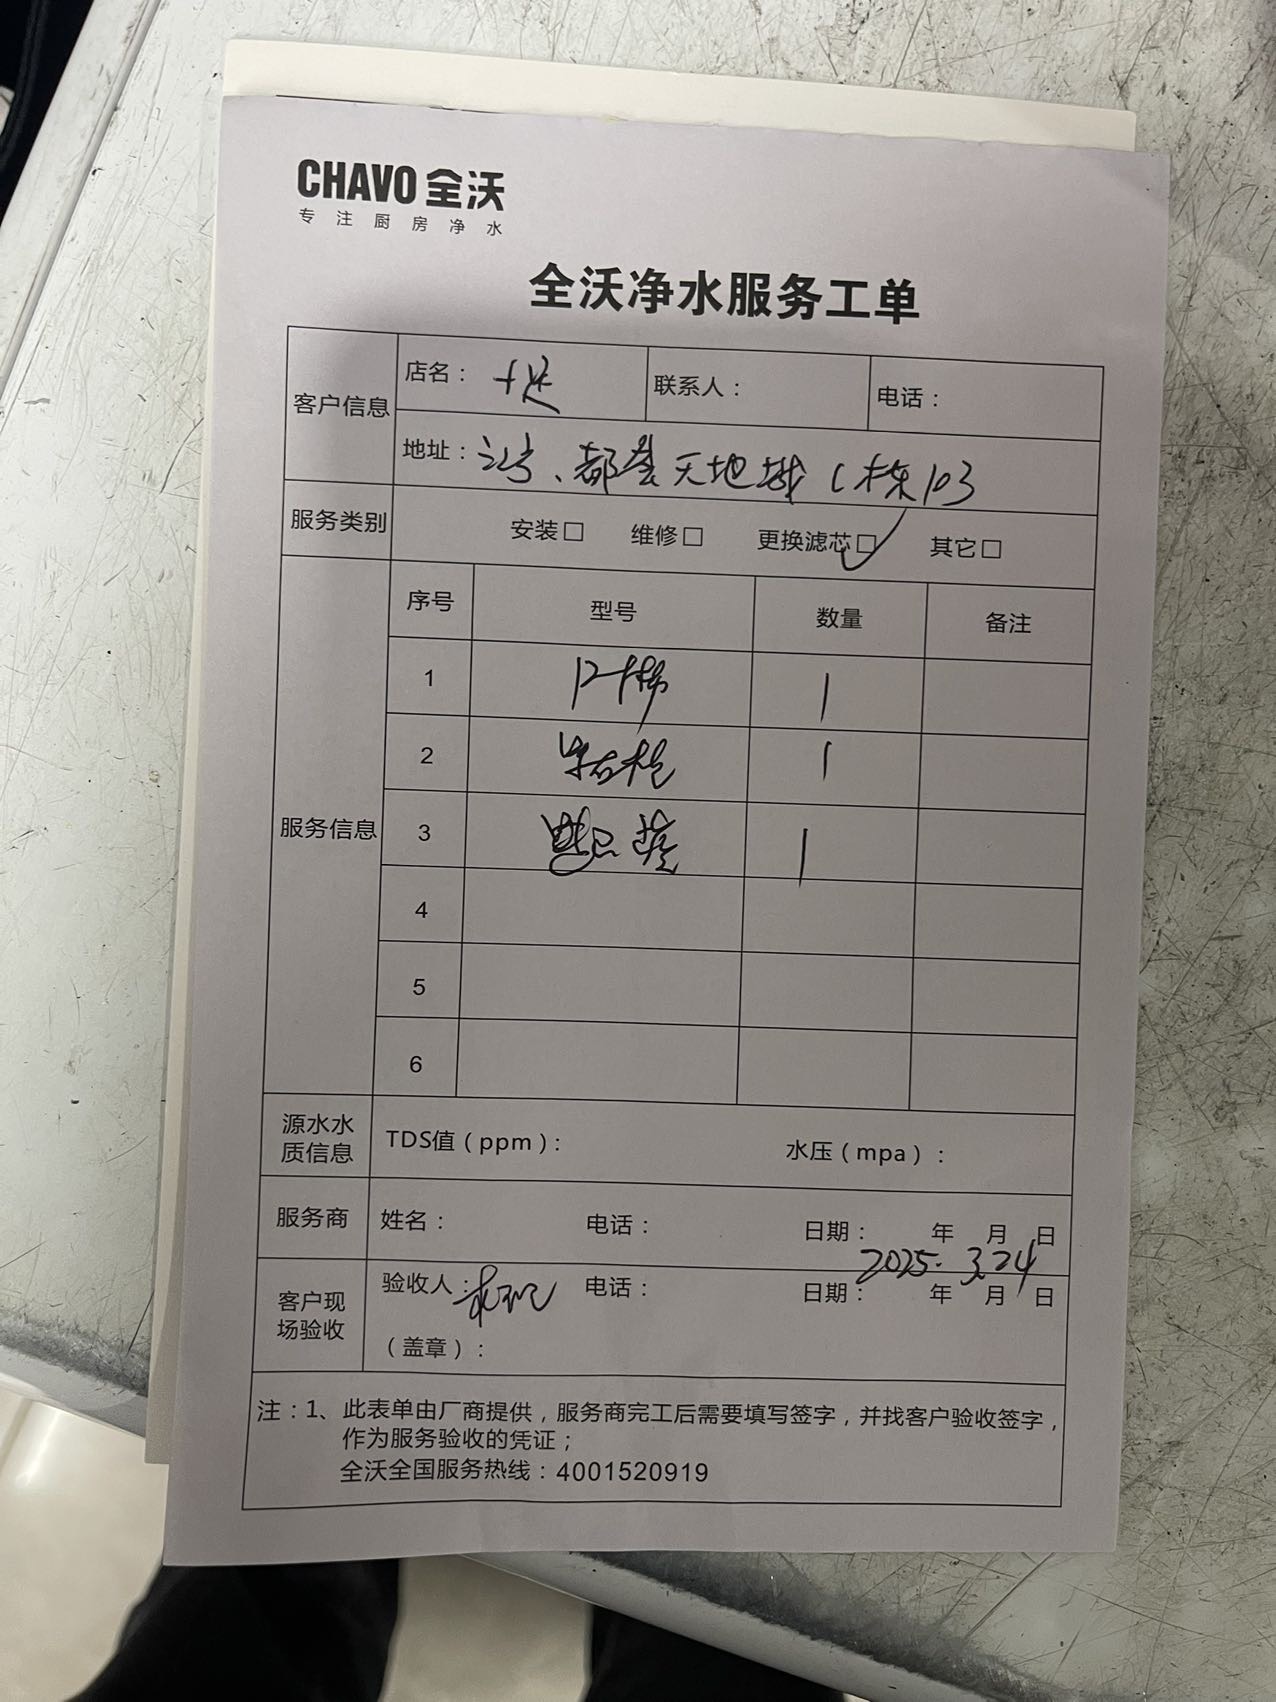 CHAVO 全沃
专注厨房净水
全沃净水服务工单
客户信息
店名：十足
联系人：
电话：
地址：都荟天地城C栋103
服务类别
安装□ 维修□ 更换滤芯□✓ 其它□
服务信息
序号 型号 数量 备注
1 PP棉 1
2 1
3 1
4
5
6
源水水质信息
TDS值（ppm）：
水压（mpa）：
服务商
姓名：
电话：
日期： 年 月 日
2025.3.24
客户现场验收
验收人：
电话：
日期： 年 月 日
（盖章）：
注：1、此表单由厂商提供，服务商完工后需要填写签字，并找客户验收签字，
作为服务验收的凭证；
全沃全国服务热线：4001520919